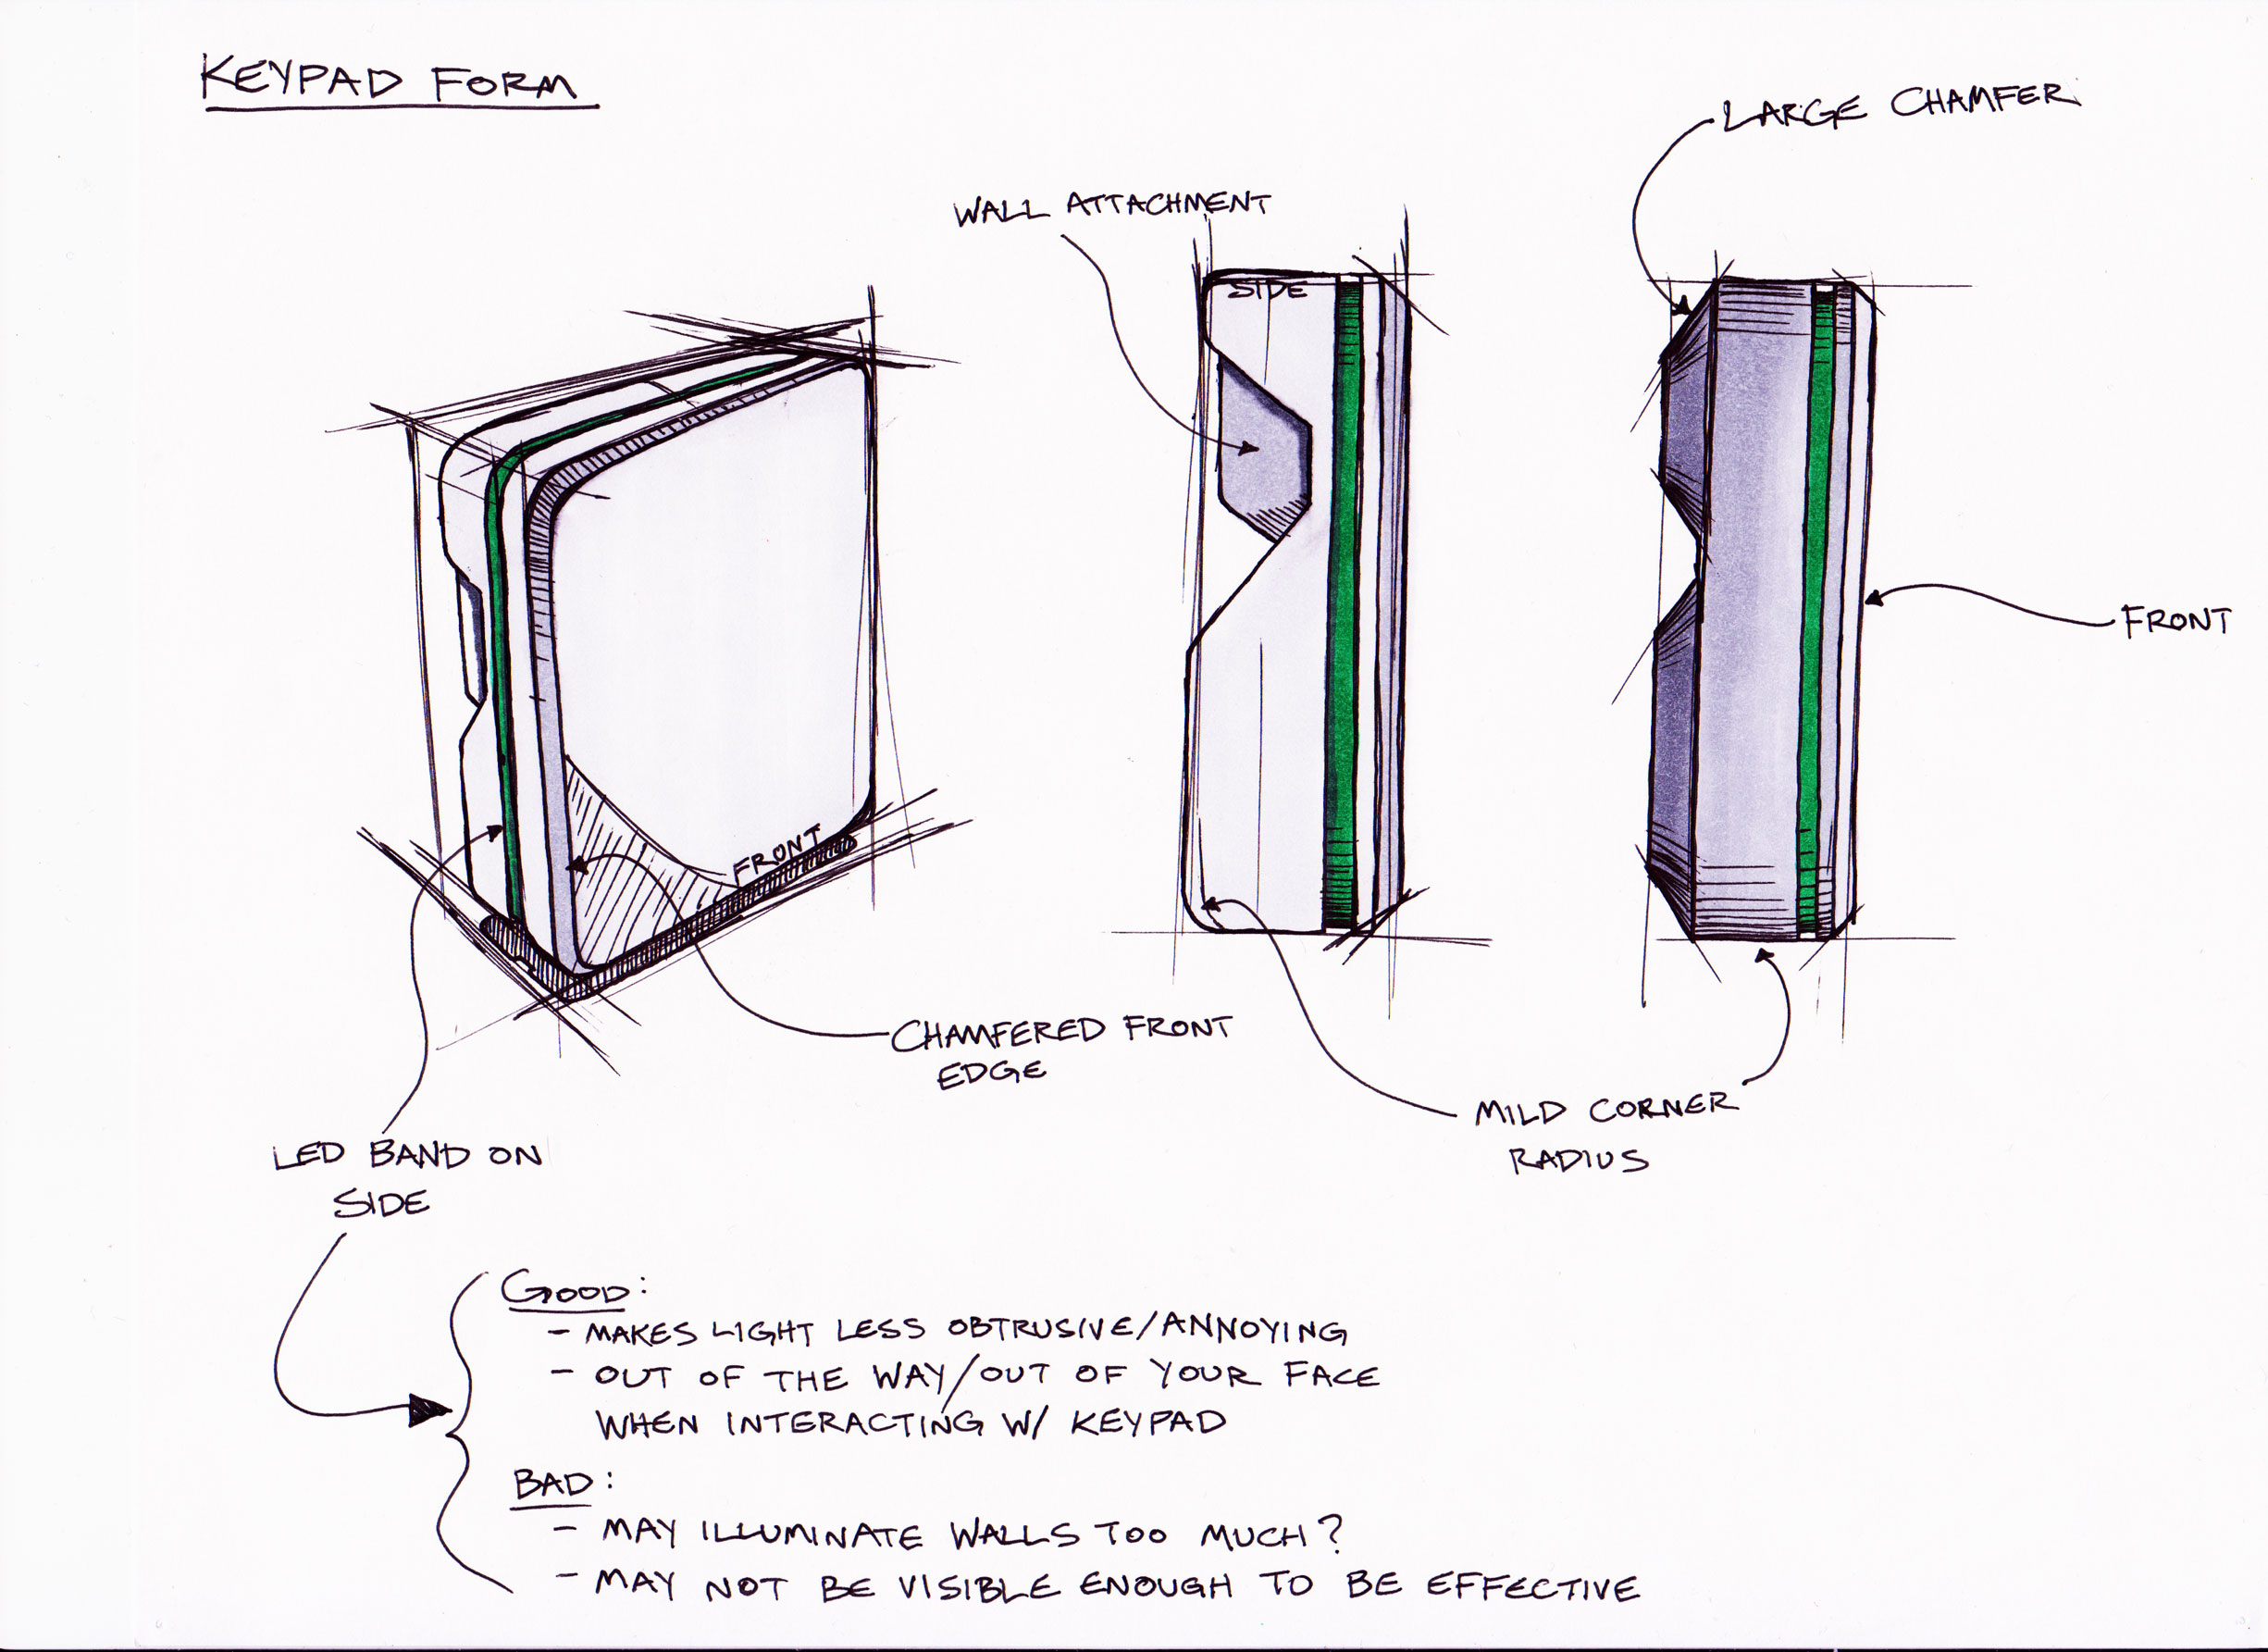 KEYPAD FORM
LARGE CHAMFER
WALL ATTACHMENT
SIDE
FRONT
FRONT
CHAMFERED FRONT
EDGE
MILD CORNER
RADIUS
LED BAND ON
SIDE
GOOD:
- MAKES LIGHT LESS OBTRUSIVE/ANNOYING
- OUT OF THE WAY/OUT OF YOUR FACE
WHEN INTERACTING W/ KEYPAD
BAD:
- MAY ILLUMINATE WALLS TOO MUCH?
- MAY NOT BE VISIBLE ENOUGH TO BE EFFECTIVE